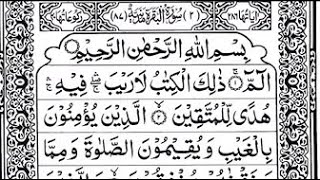 اٰيَاتُهَا ٢٨٦ (٢) سُوْرَةُ الْبَقَرَةِ مَدَنِيَّةٌ (٨٧) رُكُوْعَاتُهَا
بِسْمِ اللّٰهِ الرَّحْمٰنِ الرَّحِيْمِ
الٓمّٓ ۚ ﴿۱﴾ ذٰلِكَ الْكِتٰبُ لَا رَيْبَ ۛۖ فِيْهِ ۛ
هُدًى لِّلْمُتَّقِيْنَ ﴿۲﴾ الَّذِيْنَ يُؤْمِنُوْنَ
بِالْغَيْبِ وَيُقِيْمُوْنَ الصَّلٰوةَ وَمِمَّا